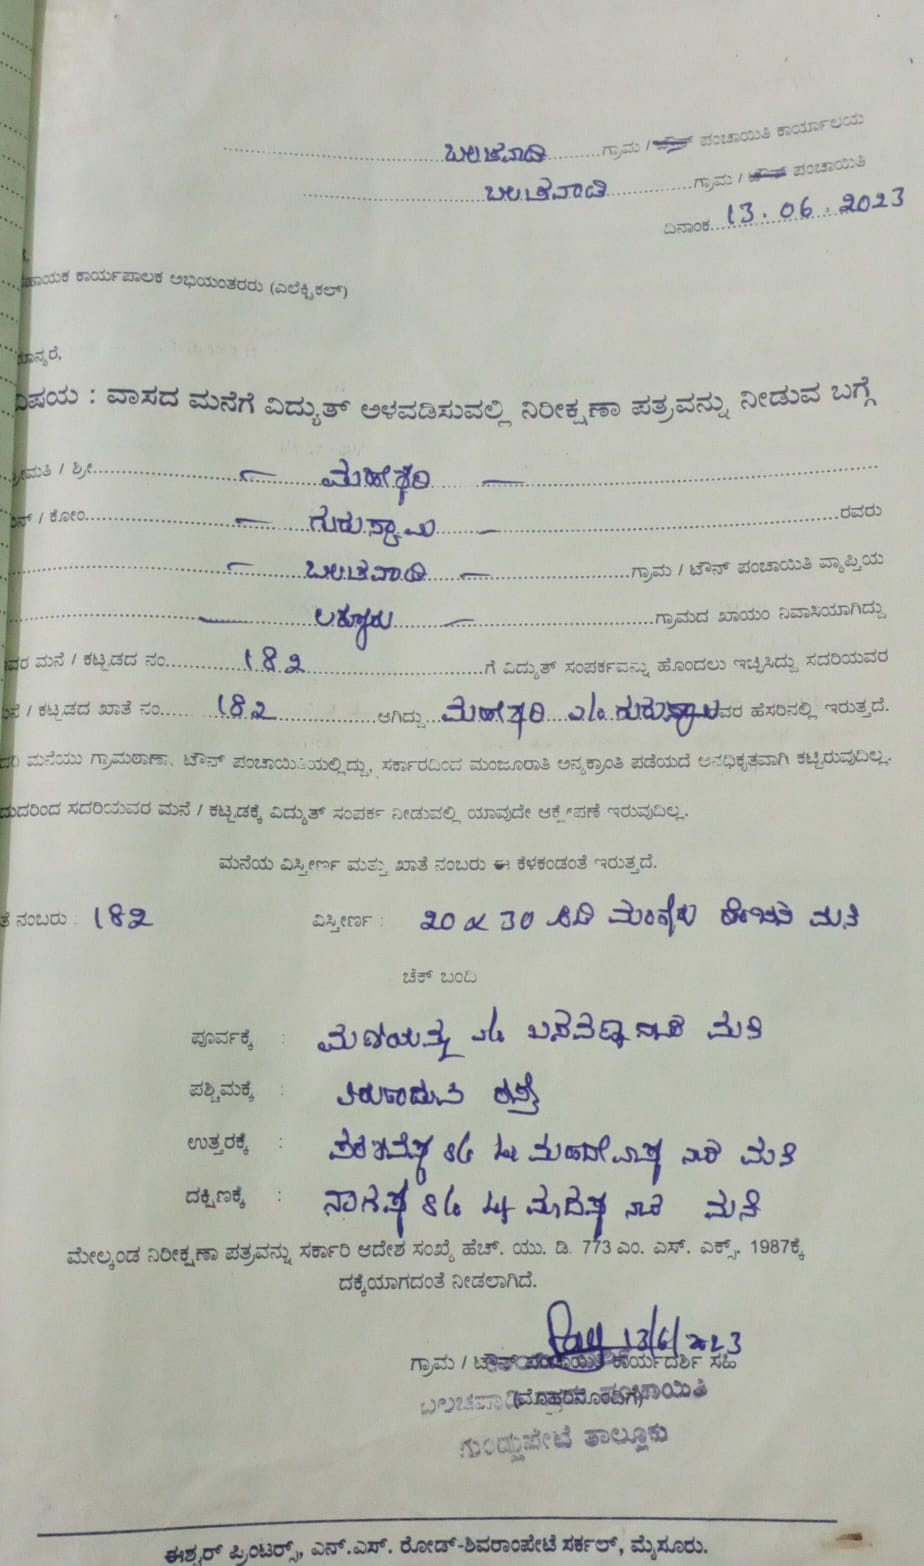 ಬಲಚವಾಡಿ ಗ್ರಾಮ / ಟೌನ್ ಪಂಚಾಯಿತಿ ಕಾರ್ಯಾಲಯ
ಬಲಚವಾಡಿ ಗ್ರಾಮ / ಟೌನ್ ಪಂಚಾಯಿತಿ
ದಿನಾಂಕ 13.06.2023
ಕಾರ್ಯಪಾಲಕ ಅಭಿಯಂತರರು (ಎಲೆಕ್ಟ್ರಿಕಲ್)
ಮಾನ್ಯರೆ,
ವಿಷಯ : ವಾಸದ ಮನೆಗೆ ವಿದ್ಯುತ್ ಅಳವಡಿಸುವಲ್ಲಿ ನಿರೀಕ್ಷಣಾ ಪತ್ರವನ್ನು ನೀಡುವ ಬಗ್ಗೆ
ಶ್ರೀಮತಿ / ಶ್ರೀ — ಮಹೇಶ್ವರಿ —
ಬಿನ್ / ಕೋಂ — ಗುರುಸ್ವಾಮಿ — ರವರು
— ಬಲಚವಾಡಿ — ಗ್ರಾಮ / ಟೌನ್ ಪಂಚಾಯಿತಿ ವ್ಯಾಪ್ತಿಯ
— ಲಕ್ಕೂರು — ಗ್ರಾಮದ ಖಾಯಂ ನಿವಾಸಿಯಾಗಿದ್ದು
ಮನೆ / ಕಟ್ಟಡದ ನಂ 182 ಗೆ ವಿದ್ಯುತ್ ಸಂಪರ್ಕವನ್ನು ಹೊಂದಲು ಇಚ್ಛಿಸಿದ್ದು ಸದರಿಯವರ
ಮನೆ / ಕಟ್ಟಡದ ಖಾತೆ ನಂ 182 ಆಗಿದ್ದು ಮಹೇಶ್ವರಿ ಗುರುಸ್ವಾಮಿ ರವರ ಹೆಸರಿನಲ್ಲಿ ಇರುತ್ತದೆ.
ಸದರಿ ಮನೆಯು ಗ್ರಾಮಠಾಣಾ, ಟೌನ್ ಪಂಚಾಯಿತಿಯಲ್ಲಿದ್ದು, ಸರ್ಕಾರದಿಂದ ಮಂಜೂರಾತಿ ಅನ್ಯಕ್ರಾಂತಿ ಪಡೆಯದೆ ಅನಧಿಕೃತವಾಗಿ ಕಟ್ಟಿರುವುದಿಲ್ಲ.
ಸದರಿಯವರ ಮನೆ / ಕಟ್ಟಡಕ್ಕೆ ವಿದ್ಯುತ್ ಸಂಪರ್ಕ ನೀಡುವಲ್ಲಿ ಯಾವುದೇ ಆಕ್ಷೇಪಣೆ ಇರುವುದಿಲ್ಲ.
ಮನೆಯ ವಿಸ್ತೀರ್ಣ ಮತ್ತು ಖಾತೆ ನಂಬರು ಈ ಕೆಳಕಂಡಂತೆ ಇರುತ್ತದೆ.
ಖಾತೆ ನಂಬರು : 182 ವಿಸ್ತೀರ್ಣ : 20 x 30 ಅಡಿ ಮನೆ
ಚೆಕ್ ಬಂದಿ
ಪೂರ್ವಕ್ಕೆ : ಮನೆ
ಪಶ್ಚಿಮಕ್ಕೆ : ತಿರುಗಾಡುವ ರಸ್ತೆ
ಉತ್ತರಕ್ಕೆ : ಮನೆ
ದಕ್ಷಿಣಕ್ಕೆ : ನಾಗಪ್ಪ ಮಾದಪ್ಪ ಮನೆ
ಮೇಲ್ಕಂಡ ನಿರೀಕ್ಷಣಾ ಪತ್ರವನ್ನು ಸರ್ಕಾರಿ ಆದೇಶ ಸಂಖ್ಯೆ ಹೆಚ್. ಯು. ಡಿ. 773 ಎಂ. ಎಸ್. ಎಕ್ಸ್. 1987ಕ್ಕೆ
ದಕ್ಕೆಯಾಗದಂತೆ ನೀಡಲಾಗಿದೆ.
13/6/2023
ಗ್ರಾಮ / ಟೌನ್ ಪಂಚಾಯಿತಿ ಕಾರ್ಯದರ್ಶಿ ಸಹಿ
(ಮೊಹರಿನೊಂದಿಗೆ)
ಗುಂಡ್ಲುಪೇಟೆ ತಾಲ್ಲೂಕು
ಈಶ್ವರ್ ಪ್ರಿಂಟರ್ಸ್, ಎನ್.ಎಸ್. ರೋಡ್-ಶಿವರಾಂಪೇಟೆ ಸರ್ಕಲ್, ಮೈಸೂರು.